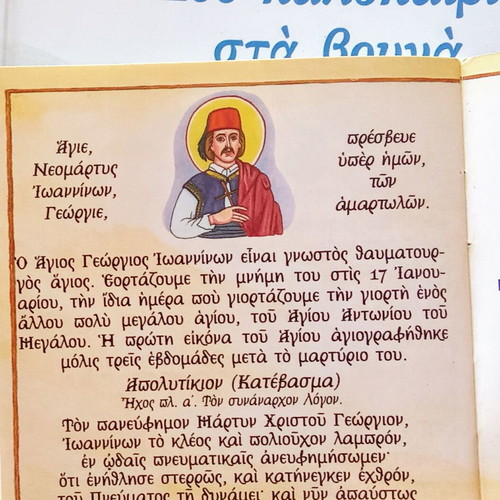 στὰ βουνὰ
Ἅγιε,
Νεομάρτυς
Ἰωαννίνων,
Γεώργιε,
πρέσβευε
ὑπὲρ ἡμῶν,
τῶν
ἁμαρτωλῶν.
Ὁ Ἅγιος Γεώργιος Ἰωαννίνων εἶναι γνωστὸς θαυματουρ-
γὸς ἅγιος. Ἑορτάζουμε τὴν μνήμη του στὶς 17 Ἰανου-
αρίου, τὴν ἴδια ἡμέρα ποὺ γιορτάζουμε τὴν γιορτὴ ἑνὸς
ἄλλου πολὺ μεγάλου ἁγίου, τοῦ Ἁγίου Ἀντωνίου τοῦ
Μεγάλου. Ἡ πρώτη εἰκόνα τοῦ Ἁγίου ἁγιογραφήθηκε
μόλις τρεῖς ἑβδομάδες μετὰ τὸ μαρτύριο του.
Ἀπολυτίκιον (Κατέβασμα)
Ἦχος πλ. α΄. Τὸν συνάναρχον Λόγον.
Τὸν πανεύφημον Μάρτυν Χριστοῦ Γεώργιον,
Ἰωαννίνων τὸ κλέος καὶ πολιοῦχον λαμπρόν,
ἐν ᾠδαῖς πνευματικαῖς ἀνευφημήσωμεν·
ὅτι ἐνήθλησε στερρῶς, καὶ κατήνεγκεν ἐχθρόν,
τοῦ Πνεύματος τῇ δυνάμει· καὶ νῦν ἀπαύστως